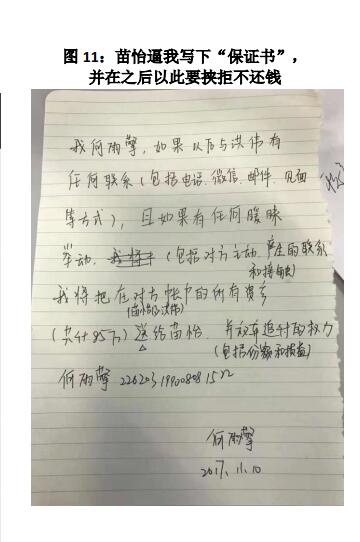 图 11：苗怡逼我写下“保证书”，
并在之后以此要挟拒不还钱
我何雨擎，如果以后与洪伟有
任何联系（包括电话、微信、邮件、见面
等方式），且如果有任何暧昧
举动，（包括对方主动产生的联系
和接触）
我将把在对方帐户的所有资金
（共计95万）送给苗怡，并放弃追讨的权力
（包括份额和损益）
何雨擎
何雨擎
2017.11.10